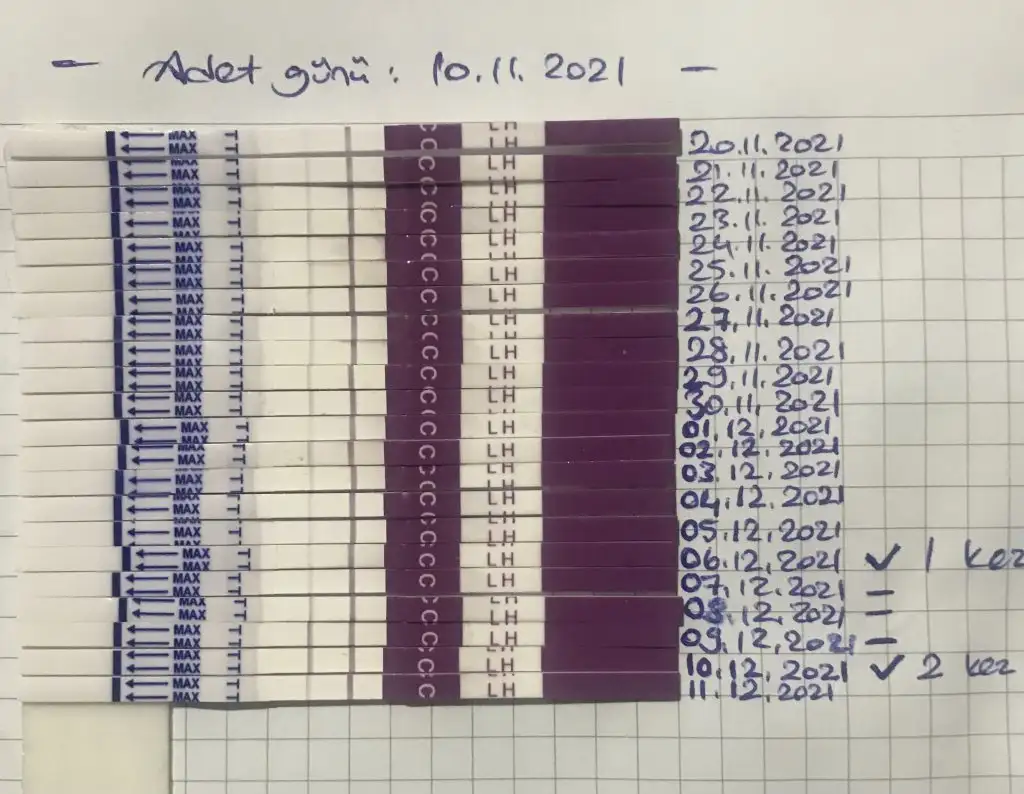 - Adet günü: 10.11.2021 -
MAX T C LH 20.11.2021
MAX T C LH 21.11.2021
MAX T C LH 22.11.2021
MAX T C LH 23.11.2021
MAX T C LH 24.11.2021
MAX T C LH 25.11.2021
MAX T C LH 26.11.2021
MAX T C LH 27.11.2021
MAX T C LH 28.11.2021
MAX T C LH 29.11.2021
MAX T C LH 30.11.2021
MAX T C LH 01.12.2021
MAX T C LH 02.12.2021
MAX T C LH 03.12.2021
MAX T C LH 04.12.2021
MAX T C LH 05.12.2021
MAX T C LH 06.12.2021 ✓ 1 kez
MAX T C LH 07.12.2021 -
MAX T C LH 08.12.2021 -
MAX T C LH 09.12.2021 -
MAX T C LH 10.12.2021 ✓ 2 kez
MAX T C LH 11.12.2021